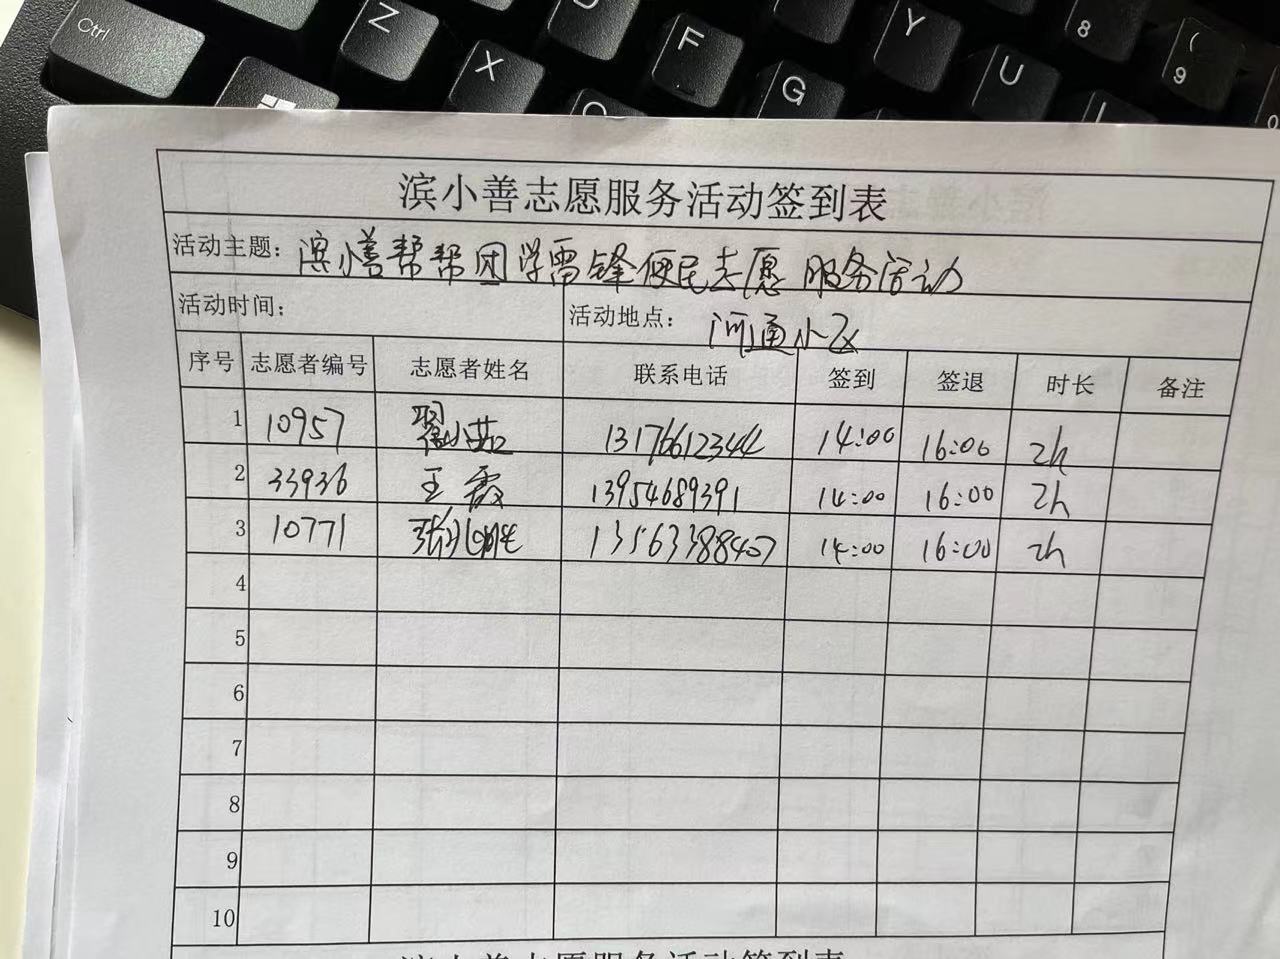 Ctrl Z X D F G Y U 8 ( 9
滨小善志愿服务活动签到表
活动主题: 滨小善帮帮团学雷锋便民志愿服务活动
活动时间: 活动地点: 河通小区
序号 志愿者编号 志愿者姓名 联系电话 签到 签退 时长 备注
1 10957 翟小茹 13176612344 14:00 16:00 2h
2 33936 王霞 13954689391 14:00 16:00 2h
3 10771 张 13563388407 14:00 16:00 2h
4
5
6
7
8
9
10
滨小善志愿服务活动签到表